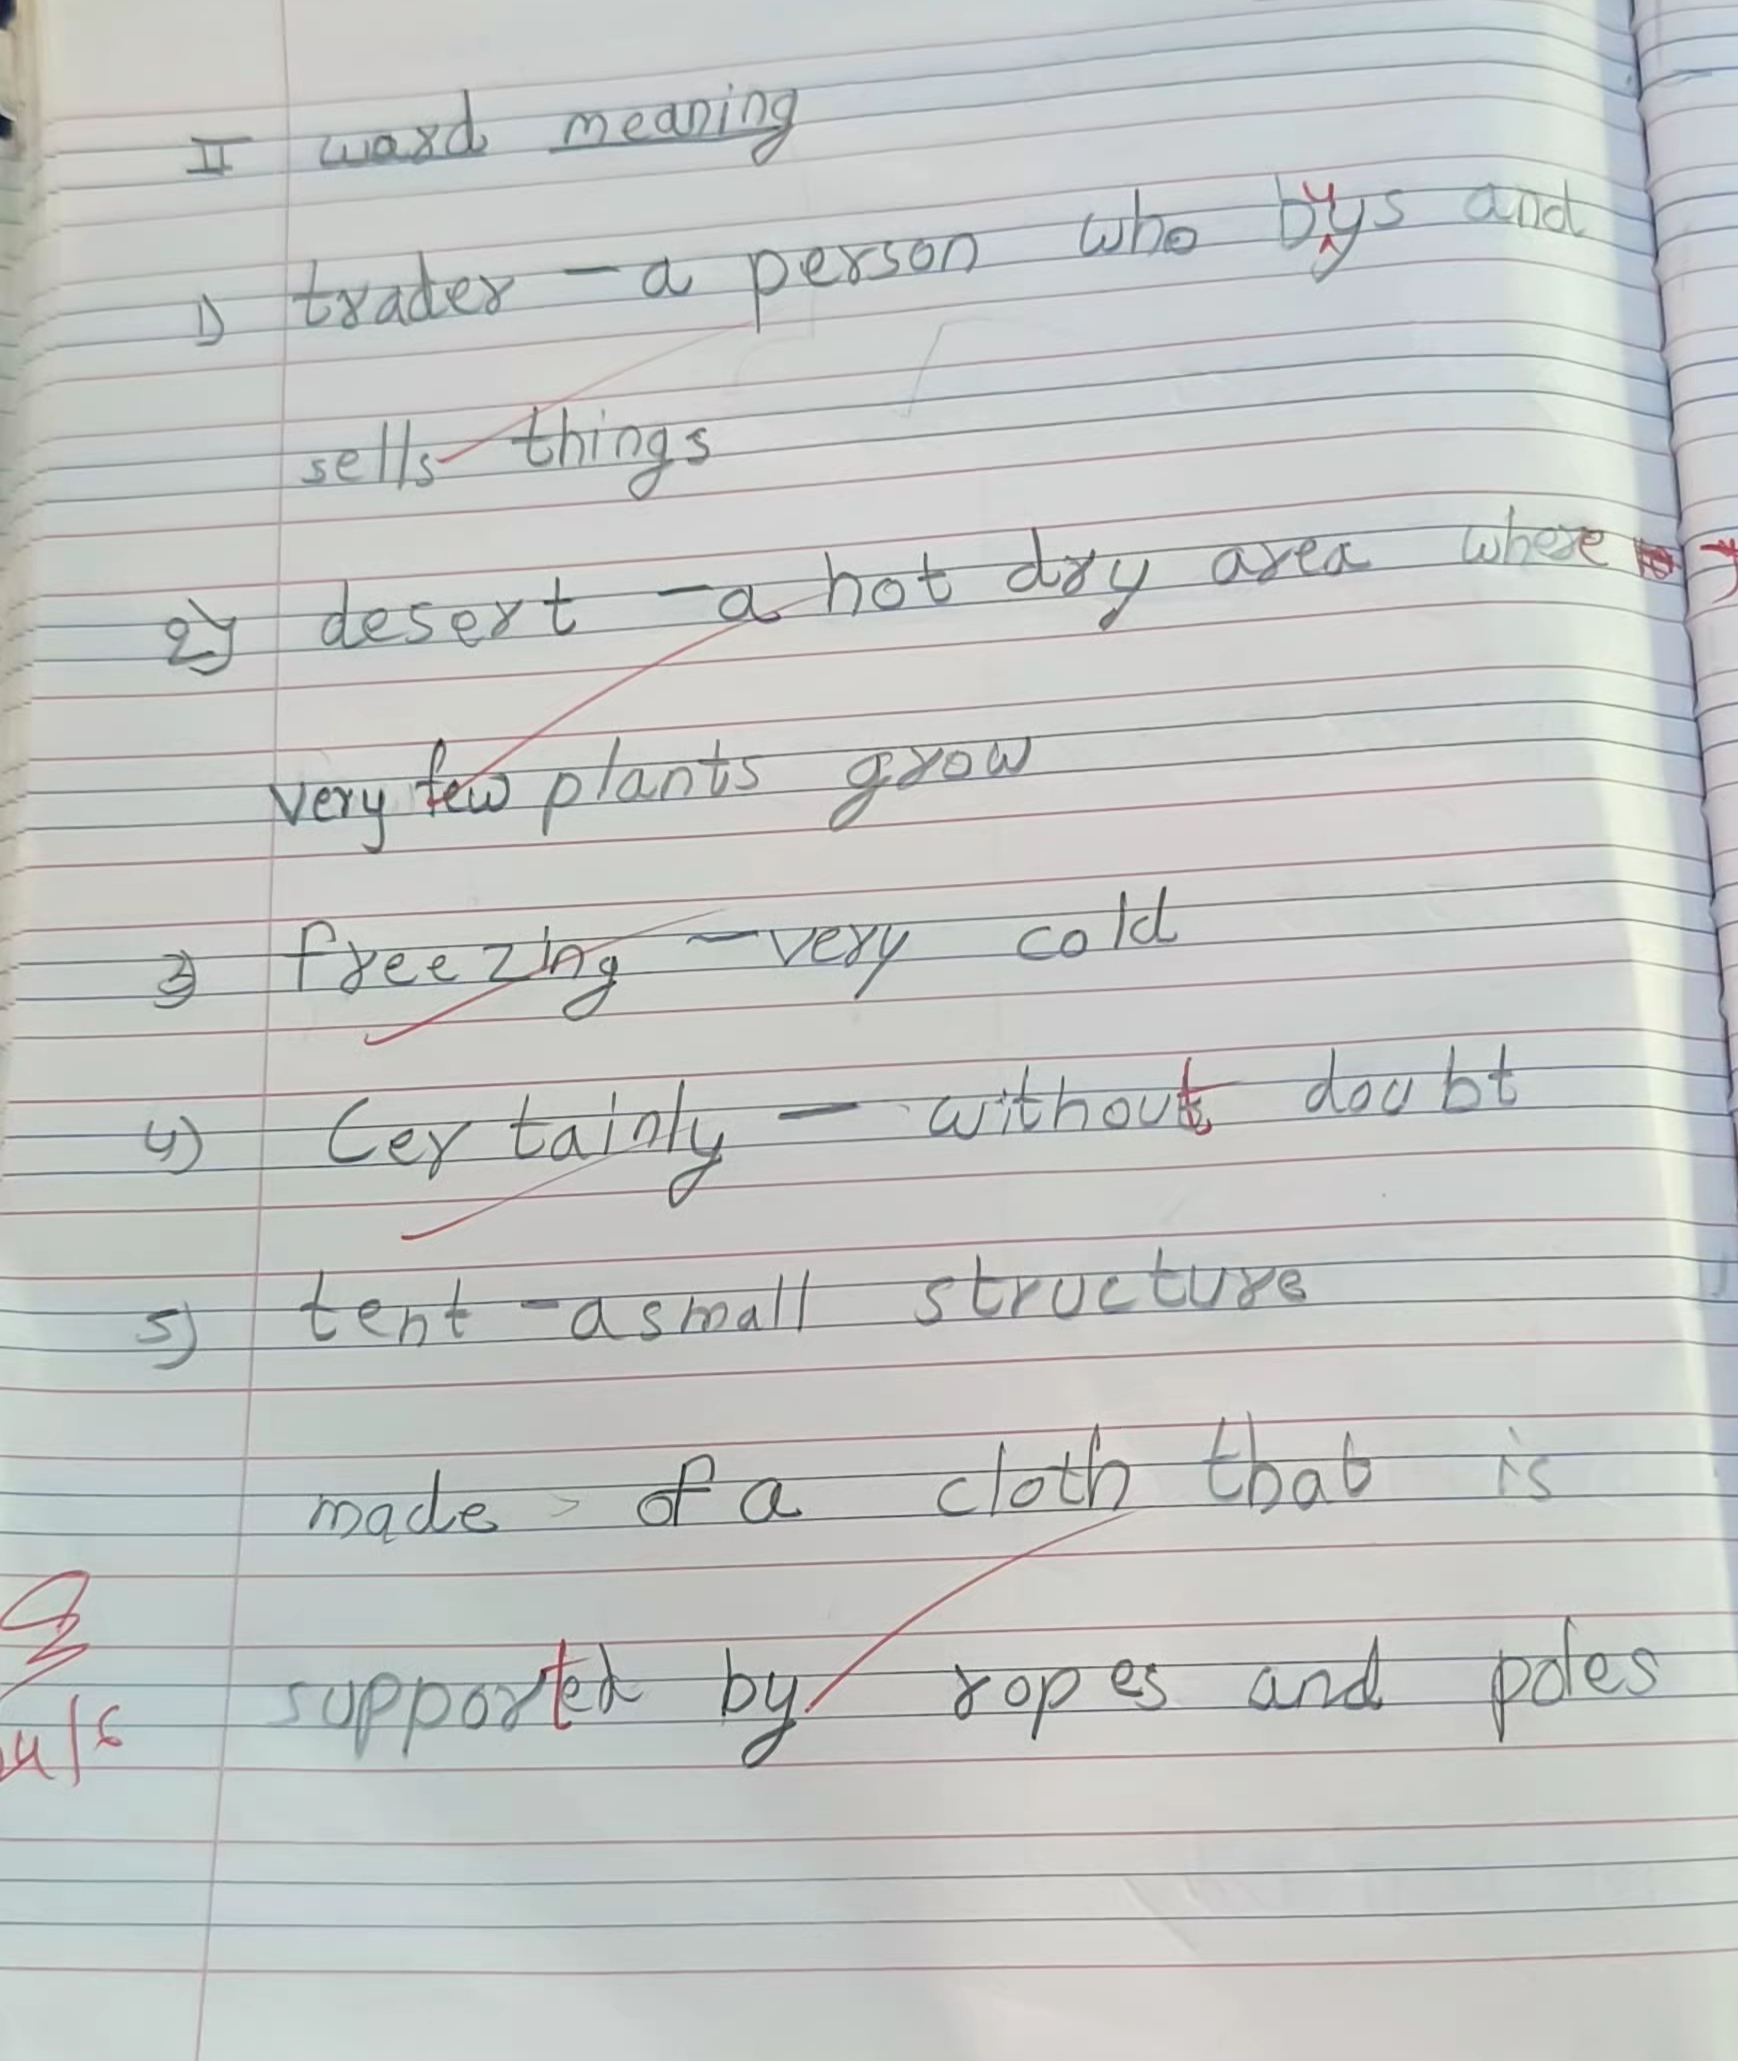 II word meaning
1) trader - a person who buys and
sells things
2) desert - a hot dry area where
very few plants grow
3) freezing - very cold
4) Certainly - without doubt
5) tent - a small structure
made of a cloth that is
supported by ropes and poles